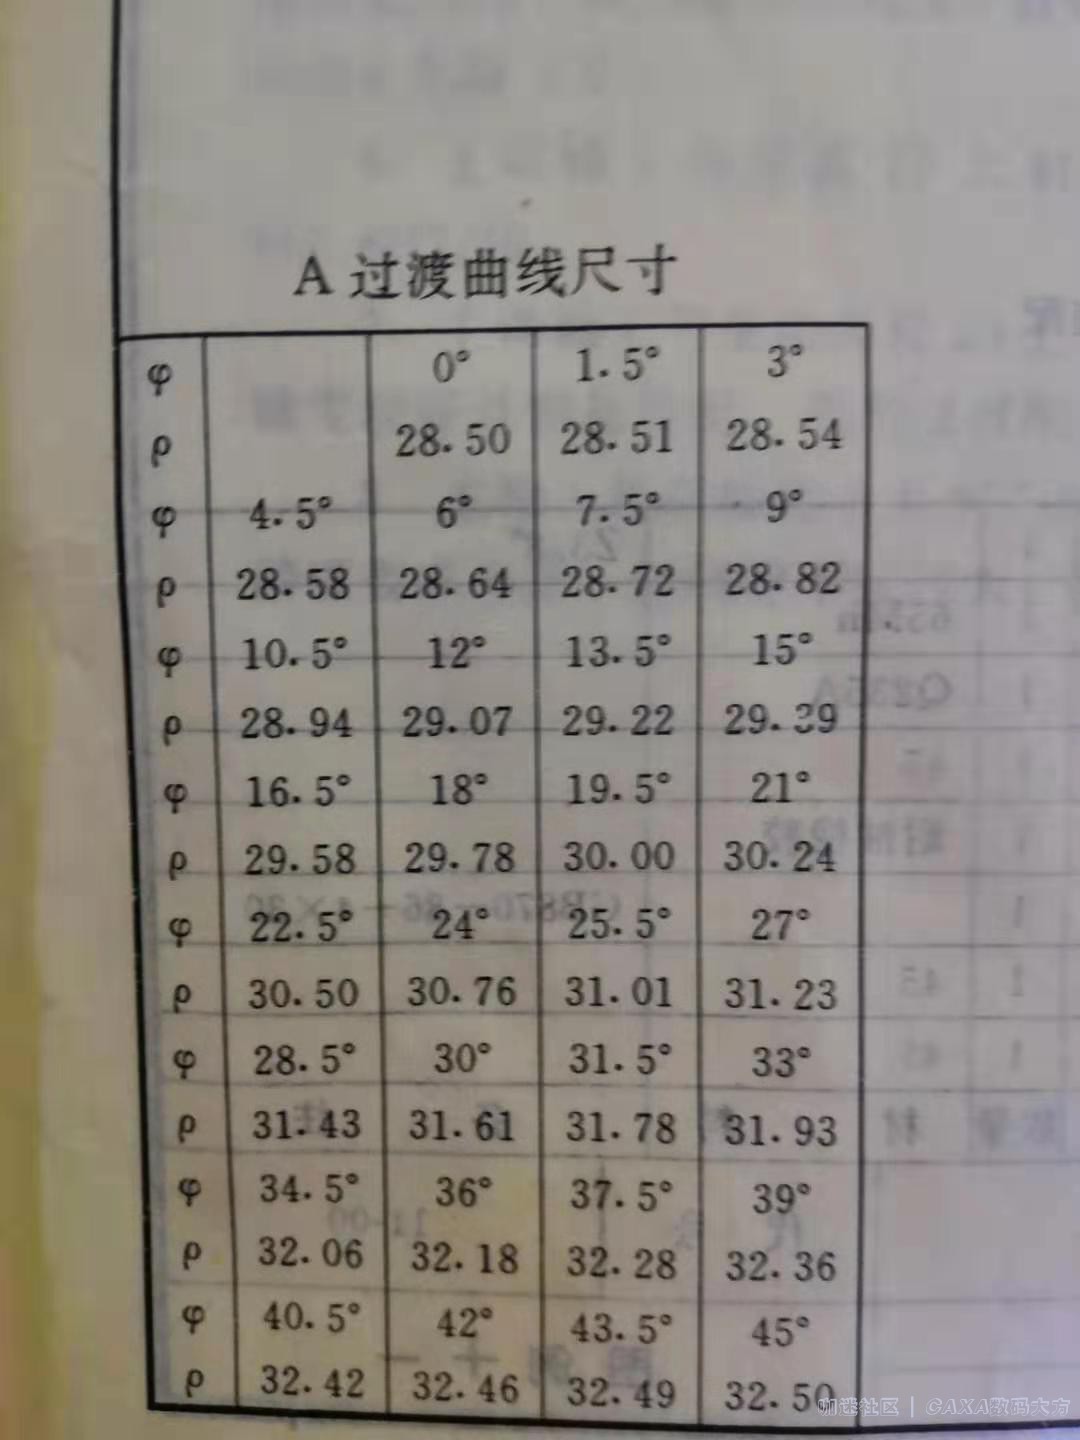 A 过渡曲线尺寸
φ 0° 1.5° 3°
ρ 28.50 28.51 28.54
φ 4.5° 6° 7.5° 9°
ρ 28.58 28.64 28.72 28.82
φ 10.5° 12° 13.5° 15°
ρ 28.94 29.07 29.22 29.39
φ 16.5° 18° 19.5° 21°
ρ 29.58 29.78 30.00 30.24
φ 22.5° 24° 25.5° 27°
ρ 30.50 30.76 31.01 31.23
φ 28.5° 30° 31.5° 33°
ρ 31.43 31.61 31.78 31.93
φ 34.5° 36° 37.5° 39°
ρ 32.06 32.18 32.28 32.36
φ 40.5° 42° 43.5° 45°
ρ 32.42 32.46 32.49 32.50
咖迷社区 | CAXA数码大方